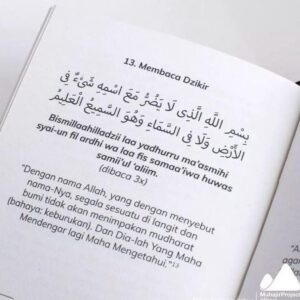 13. Membaca Dzikir
بِسْمِ اللَّهِ الَّذِى لَا يَضُرُّ مَعَ اسْمِهِ شَىْءٌ فِى
الْأَرْضِ وَلَا فِى السَّمَاءِ وَهُوَ السَّمِيعُ الْعَلِيمُ
Bismillaahilladzii laa yadhurru ma'asmihi
syai-un fil ardhi wa laa fis samaa'iwa huwas
samii'ul 'aliim.
(dibaca 3x)
"Dengan nama Allah, yang dengan menyebut
nama-Nya, segala sesuatu di langit dan
bumi tidak akan menimpakan mudharat
(bahaya: keburukan). Dan Dia-lah Yang Maha
Mendengar lagi Maha Mengetahui."13
MuhajirProject